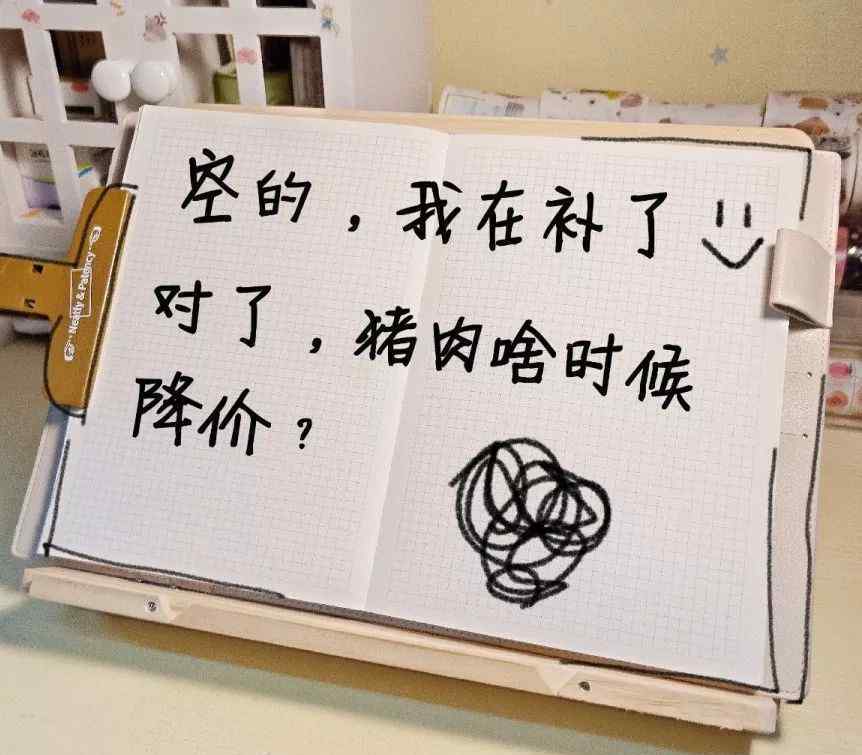 空的，我在补了
对了，猪肉啥时候
降价？
Neatly & Patency